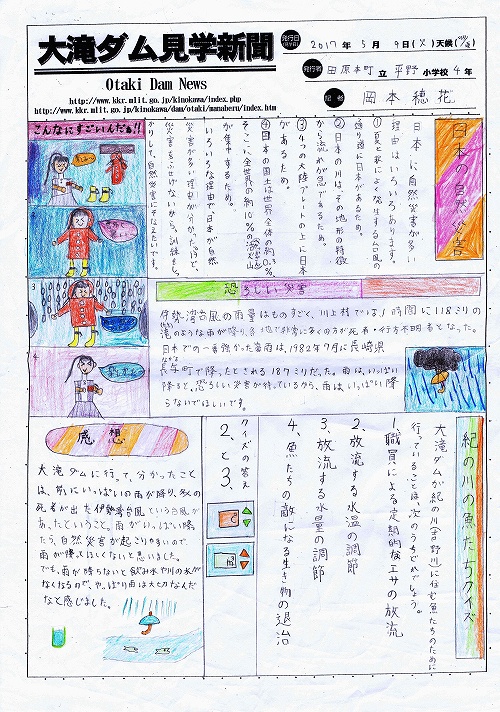 大滝ダム見学新聞
Otaki Dam News
http://www.kkr.mlit.go.jp/kinokawa/index.php
http://www.kkr.mlit.go.jp/kinokawa/dam/otaki/manaberu/index.htm
発行日
2017年5月9日(火)天候
発行者 田原本町立 平野 小学校4年
記者 岡本穂花
日本の自然災害
日本に自然災害が多い
理由はいろいろあります。
①夏と秋によく発生する台風の
通り道に日本があるため。
②日本の川は、その地形の特徴
から流れが急であるため。
③4つの大陸プレートの上に日本
があるため。
④日本の国土は世界全体の約0.3%
そこへ世界の約10%の活火山
が集中するため。
いろいろな理由で日本が自然
災害が多い理由が分かったけど、
災害をふせげないから、訓練をしっ
かりして、自然災害にそなえたいです。
こんなにすごいんだぁ!!
1
2
3
4
恐ろしい災害
伊勢湾台風の雨量はものすごく、川上村では1時間に118ミリの
滝のような雨が降り、各地で非常に多くの方が死者・行方不明者となった。
日本での一番強かった豪雨は、1982年7月に長崎県
長与町で降ったとされる187ミリだった。雨は、いっぱい
降ると、恐ろしい災害が待っているから、雨は、いっぱい降
らないでほしいです。
紀の川の魚たちクイズ
大滝ダムが紀の川(吉野川)に住む魚たちのために
行っていることは、次のうちどれでしょう。
1、職員による定期的なエサの放流
2、放流する水温の調節
3、放流する水量の調節
4、魚たちの敵になる生き物の退治
クイズの答え
2、と3、
感想
大滝ダムに行って、分かったこと
は、気にいっぱいの雨が降り、多くの
死者が出た伊勢湾台風という台風が
あったということ。雨がいっぱい降っ
たら、自然災害が起こりやすいので、
雨が降ってほしくないと思いました。
でも、雨が降らないと飲み水や川の水が
なくなるので、やっぱり雨は大切なんだ
なと感じました。